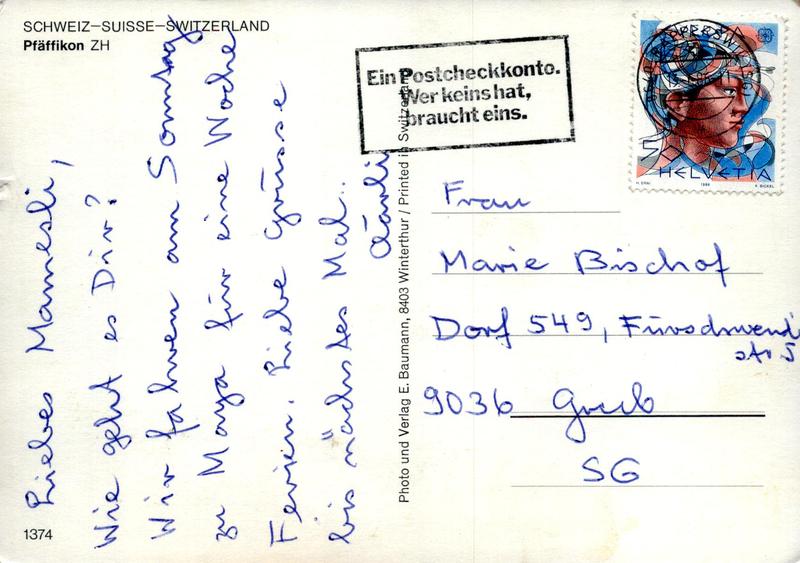 SCHWEIZ–SUISSE–SWITZERLAND
Pfäffikon ZH
Liebes Mamesli,
Wie geht es Dir?
Wir fahren am Sonntag
zu Maya für eine Woche
Ferien. Liebe Grüsse
bis nächstes Mal..
1374
Photo und Verlag E. Baumann, 8403 Winterthur / Printed in Switzerland
Ein Postcheckkonto.
Wer keins hat,
braucht eins.
HELVETIA
H. ERNI 1986 K. BICKEL
Frau
Marie Bischof
Dorf 549,
str 5
9036 Grub
SG